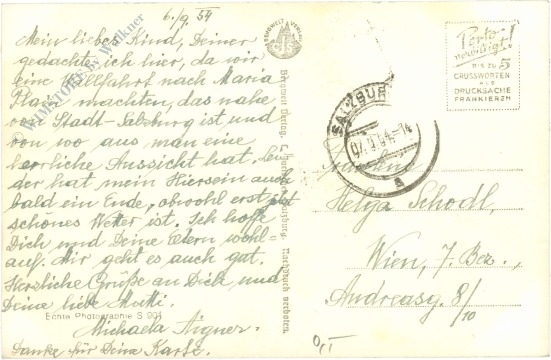 6./9. 54
Mein liebes Kind, Deiner
gedachte ich hier, da wir
eine Wallfahrt nach Maria
Plain machten, das nahe
von Stadt-Salzburg ist und
von wo aus man eine
herrliche Aussicht hat. Lei
der hat mein Hiersein auch
bald ein Ende, obwohl erst jetzt
schönes Wetter ist. Ich hoffe
Dich und Deine Eltern wohl=
auf. Mir geht es auch gut.
Herzliche Grüße an Dich und
Deine liebe Mutti.
Echte Photographie S 901
Michaela Aigner.
Danke für Deine Karte.
WIMSTORE by Walkner
BERGWELT VERLAG
CJS
Bergwelt Verlag, Salzburg. Nachdruck verboten.
SALZBURG
Porto
verbilligt!
BIS ZU 5
GRUSSWORTEN
ALS
DRUCKSACHE
FRANKIEREN
Helga Schodl,
Wien, 7. Bez.,
Andreasg. 8/10